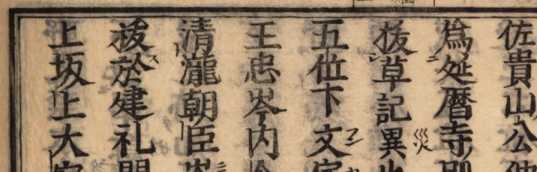 佐貴山公
為延暦寺別
抜草記異
五位下文室
王忠岑内
清瀧朝臣
祓於建礼門
上坂上大宿